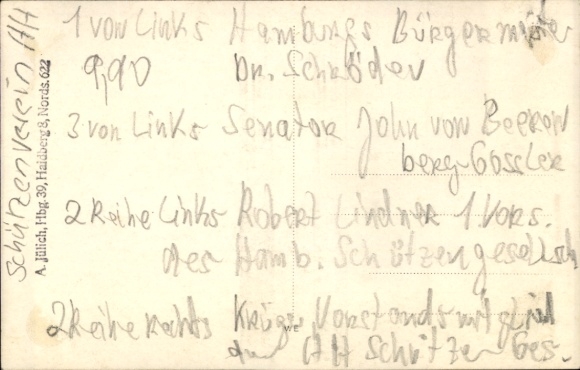 1 von Links Hamburgs Bürgermeister
9,90 Dr. Schröder
3 von Links Senator John von Beeren
berg-Gossler
2 Reihe Links Robert Lindner 1 Vors.
des Hamb. Schützengesellsch
2 Reihe rechts Krüger Vorstandsmitglied
der HH Schützen Ges.
Schützenverein HH
A. Jülich, Hbg. 39, Haidberg 8, Nords. 622
WE